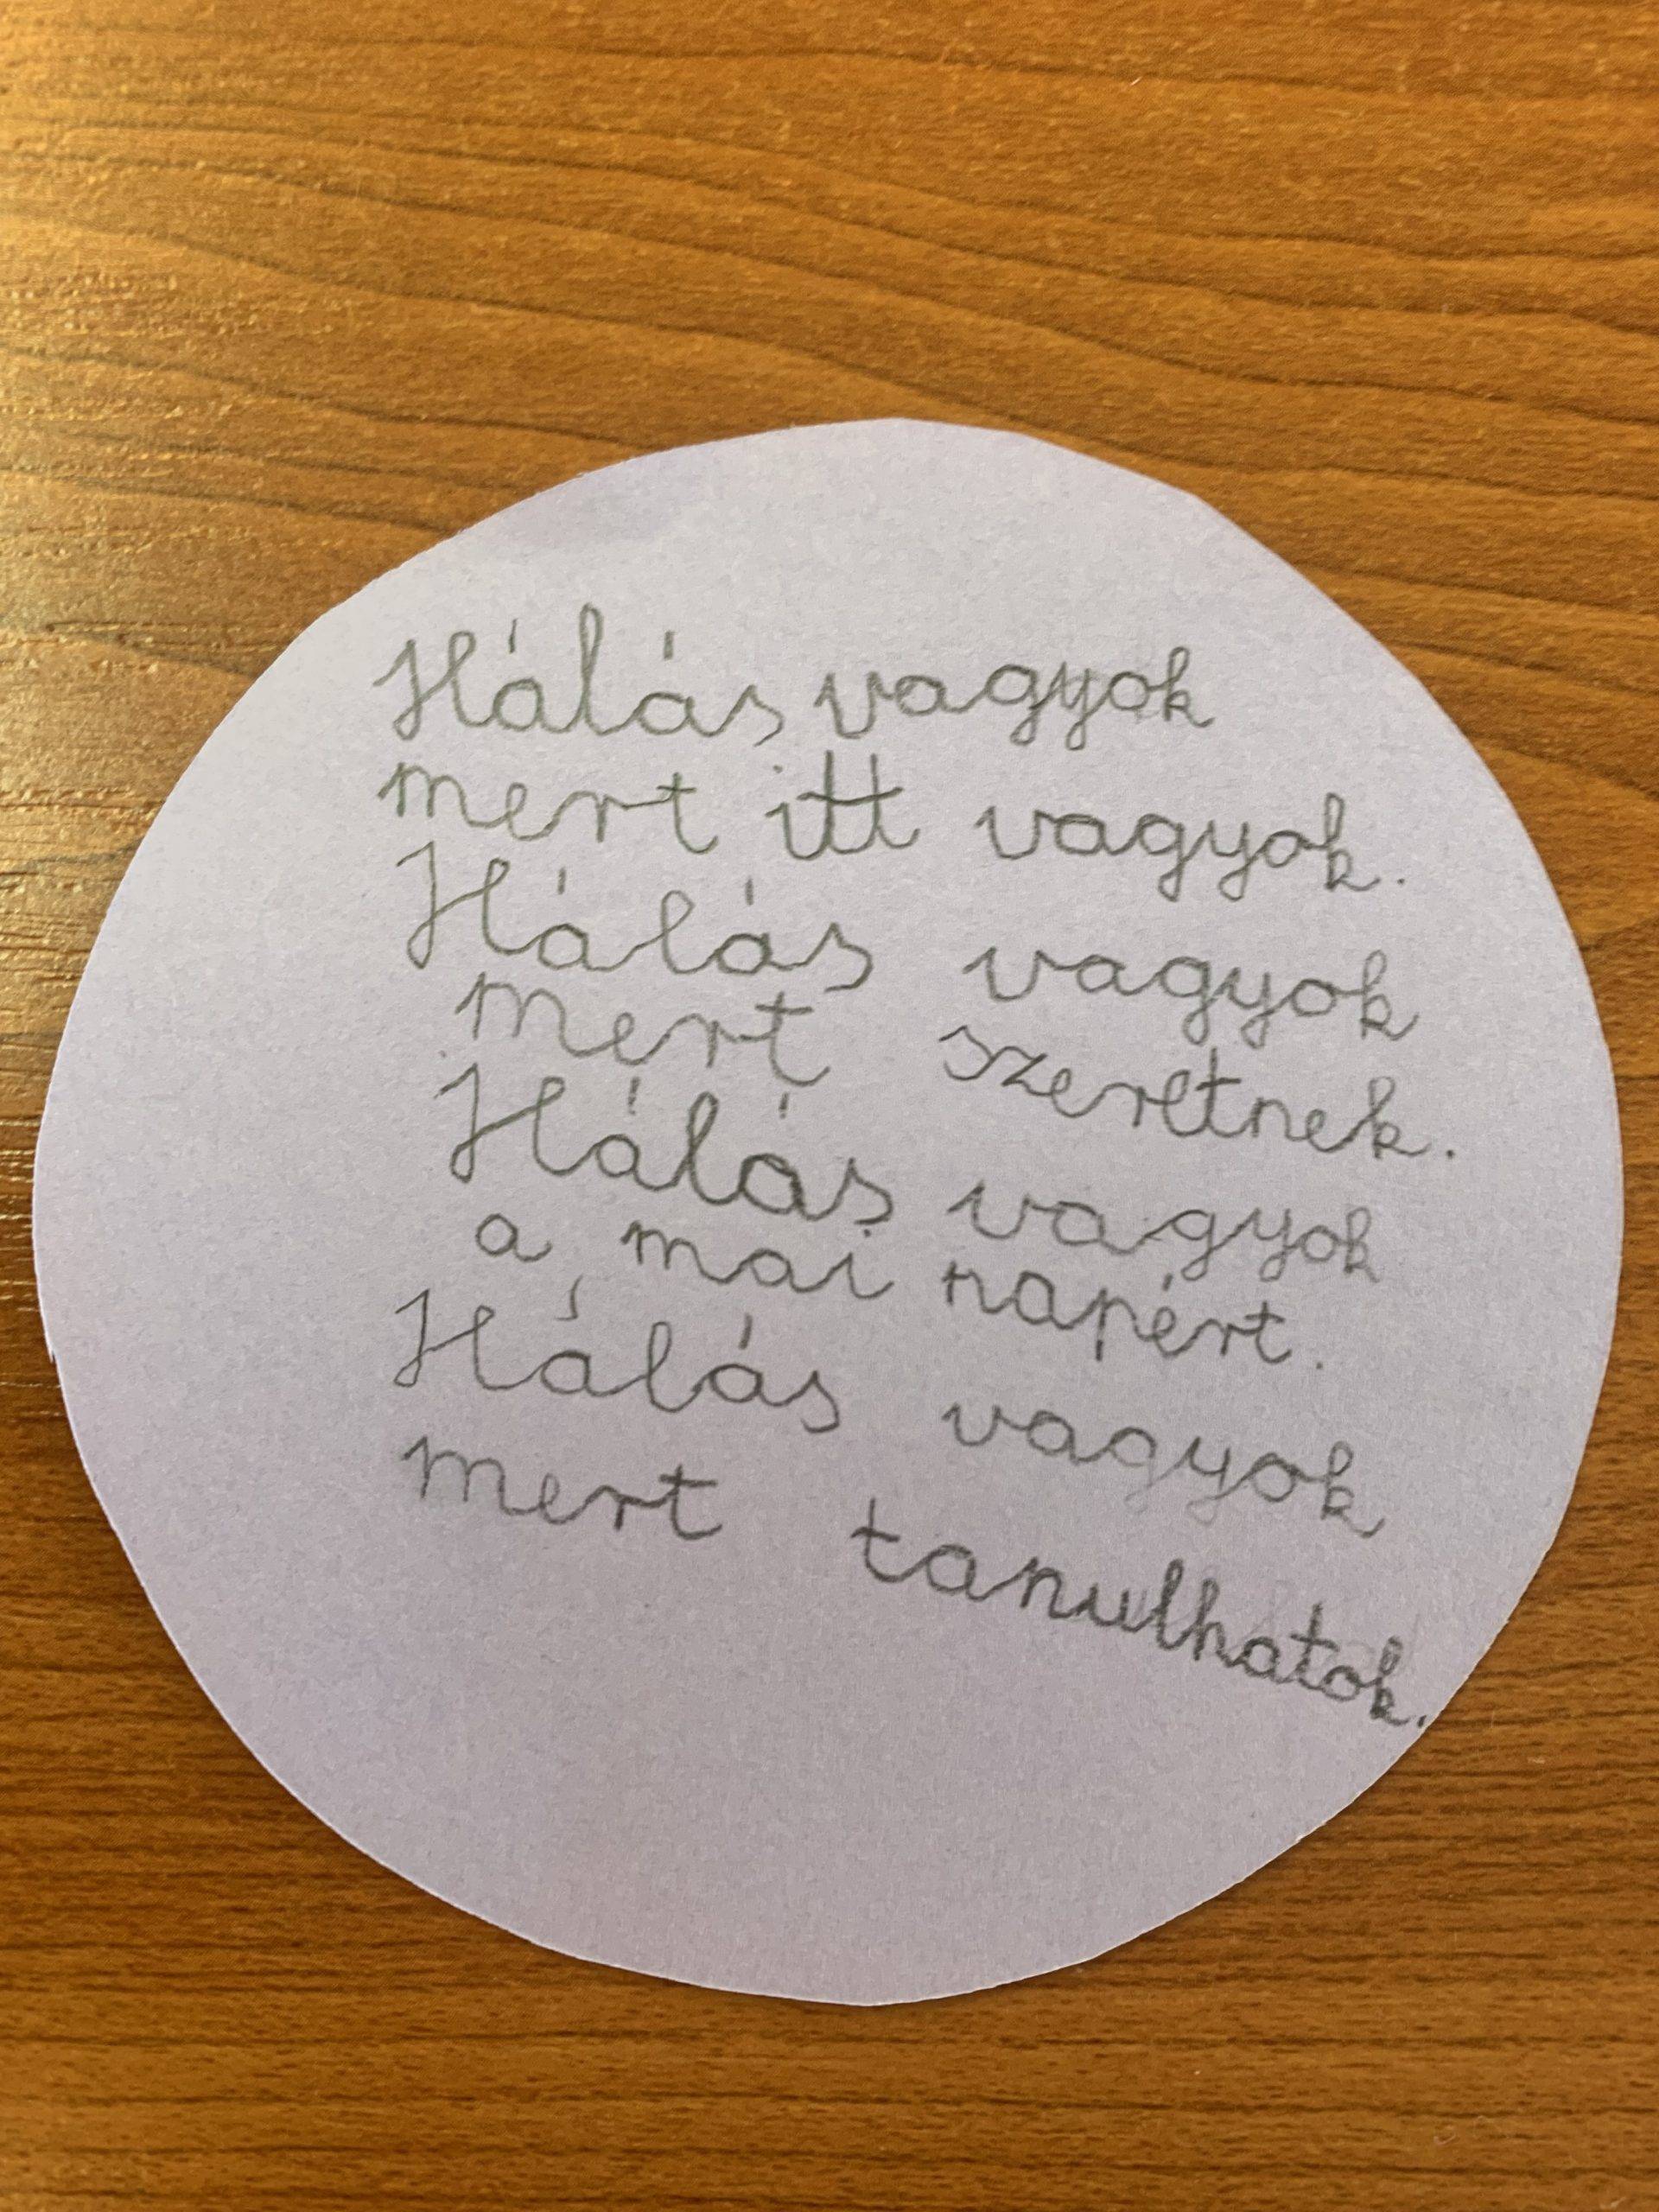 Hálás vagyok
mert itt vagyok.
Hálás vagyok
mert szeretnek.
Hálás vagyok
a mai napért.
Hálás vagyok
mert tanulhatok.